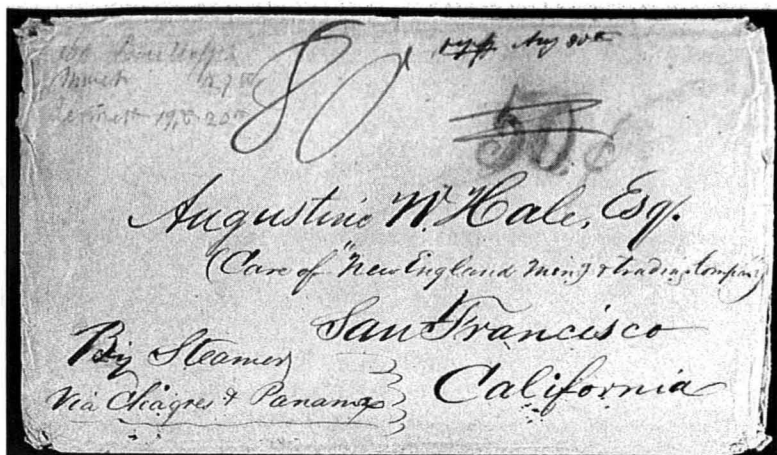 80
Aug 30th
50.¢
Augustine W. Hale, Esqr.
(Care of "New England Mining & trading Company"
San Francisco
California
By Steamer
Via Chagres & Panama